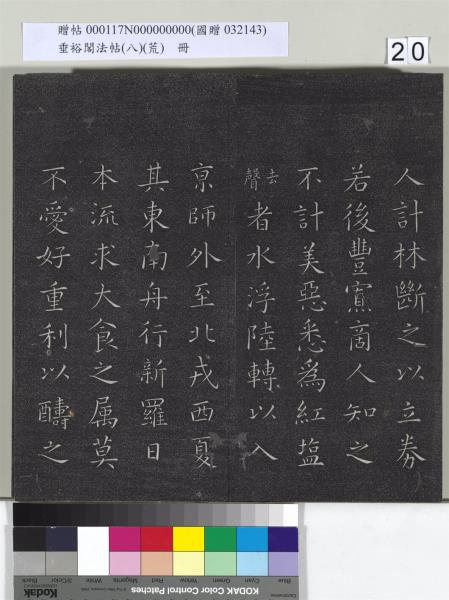 贈帖 000117N000000000(國贈 032143)
垂裕閣法帖(八)(荒) 冊
20
人計林斷之以立券
若後豐寡商人知之
不計美惡悉為紅塩
去聲者水浮陸轉以入
京師外至北戎西夏
其東南舟行新羅日
本流求大食之属莫
不愛好重利以醻之
Blue Cyan Green Yellow Red Magenta White 3/Color Black
Kodak
KODAK Color Control Patches